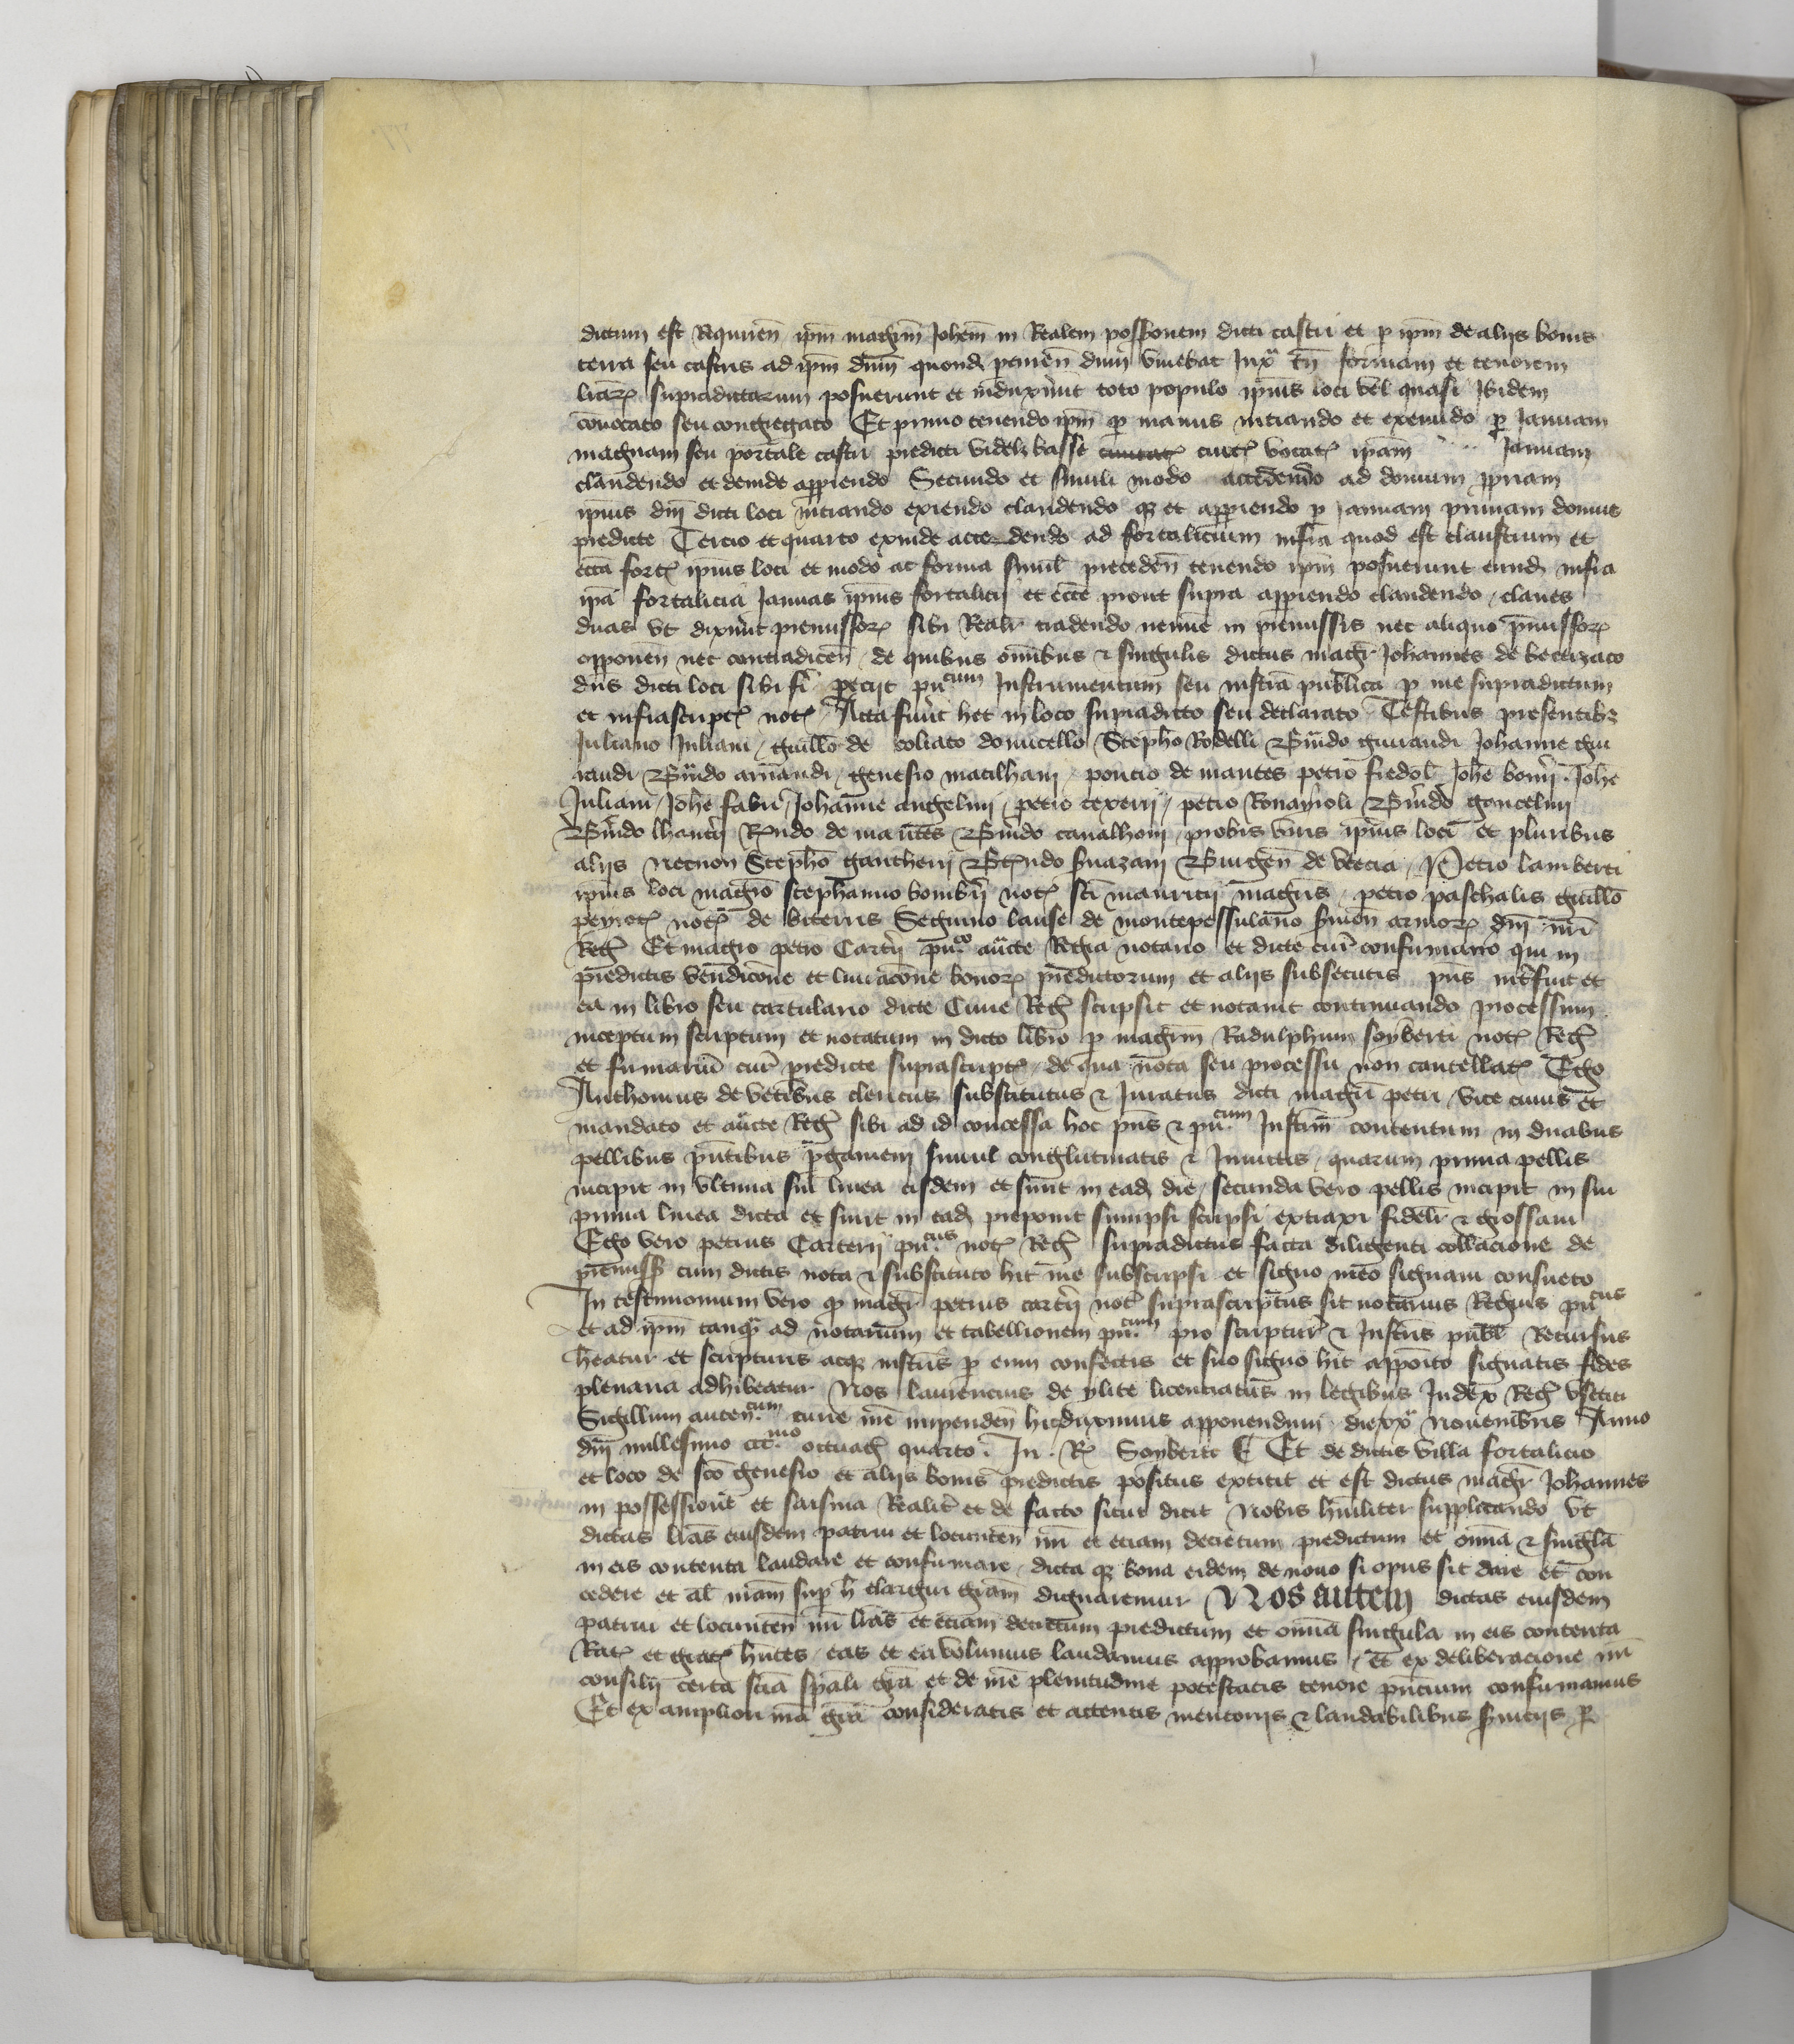 dictum est Requiren̄ ip̄m magr̄m Joh̄em in Realem poss̄ionem dicti castri et p ip̄m de alijs bonis
terra seu castris ad ip̄m dn̄m quond ꝑtinen̄ dum viuebat Juxᵃ tn̄ formam et tenorem
litteraꝝ supradictarum posuerunt et induxerūt toto populo ip̄ius loci vel quasi Ibidem
conuocato seu congregato Et primo tenendo ip̄m ꝑ manus intrando et exeundo ꝑ Januam
magnam seu portale castri predicti videlꝫ basse ciuitatꝭ curtꝭ vocatꝭ ip̄am Januam
claudendo et deinde apperiendo Secundo et simili modo accedendo ad domum ꝓpriam
ip̄ius dn̄i dicti loci intrando exiendo claudendo qꝫ et apperiendo ꝑ januam primam domus
predicte Tercio et quarto exinde accedendo ad fortalicium infra quod est claustrum et
ecc̄a fortꝭ ip̄ius loci et modo ac forma simil̄ preceden̄ tenendo ip̄m posuerunt eund infra
ip̄a fortalicia Januas ip̄ius fortalicij et ecc̄e prout supra apperiendo claudendo / claues
duas vt dixer̄ūt premissoꝝ sibi Realr̄ tradendo nemine in premissis nec aliquo p̄missoꝝ
opponen̄ nec contradicen̄ / de quibus om̄ibus ⁊ singulis dictus magr̄ Johannes de betizaco
dn̄s dicti loci sibi fi̅ peciit puᶜᵘᵐ Instrumentum seu instr̄a publica ꝑ me supradictum
et infrascriptꝭ notꝭ / Acta fuer̄ūt hec in loco supradicto seu declarato Testibus presentibꝫ
Juliano Juliani / guillō de soliaco domicello / Stepho Rodelli Bn̄do guiraudi Johanne gui
raudi Bn̄do arnaudi / genesio matilhani / poncio de mances petro fredol̄ Joh̄e bomj̄ . Joh̄e
Juliani / Joh̄e fabri / Johanne angelini / petro texerij / petro Ronaynoli Bn̄do gaucelini
Bn̄do lhautrj̄ Rn̄do de mances Bn̄do canalhoni / probis viris ip̄ius loci et pluribus
alijs necnon Stephō gautherij Bt̄ndo suazani Burgen̄ de vtecia / Petro lamberti
ip̄ius loci magrō stephanno bombrj̄ notꝭ sc̄i mauricij magr̄is / petro paschalis guillō
peyrotꝭ notꝭ de biterris Seguino lause de montepessulano ẜuien̄ armoꝝ dn̄i nr̄i
Regꝭ Et magrō petro Cartrj̄ pu.ᶜᵒ aucte Regia notario et dicte cur̄ confirmarro qui in
predictis vendicōne et liuracōne bonoꝝ predictorum et alijs subsecutis pn̄s inter̄fuit et
ea in libro seu cartulario dicte Curie Regꝭ scripsit et notauit continuando processum
inceptum scriptum et notatum in dicto libro ꝑ magr̄m Radulphum soyberti notꝭ Regꝭ
et firmariū cur̄ predicte suprascriptꝭ / de qua nota seu processu non cancellatꝭ Ego
Anthonius de vetibus clericus substitutus ⁊ Juratus dicti magr̄i petri / vice cuius et
mandato et aucte Regꝭ sibi ad id concessa hoc pn̄s ⁊ pu.ᶜᵘᵐ Instr̄m contentum in duabus
pellibus pn̄tibus ꝑgameni simul conglutinatis ⁊ Junctis / quarum prima pellis
incipit in vltima sui linea eisdem et finit in ead die / secunda vero pellis incipit in sui
prima linea dicta et finit in ead preponit sumpsi scripsi extraxi fidelr̄ ⁊ grossaui
Ego vero petrus Carterij puᶜᵘˢ notꝭ Regꝭ supradictus facta diligenti collacione de
premissꝭ cum dictis nota ⁊ substituto hic me subscripsi et signo meo signaui consueto
In testimonium vero ꝙ magr̄ petrus cartrj̄ notꝭ suprascriptus sit notarius Regius puᶜᵘˢ
et ad ip̄m tanqᵃ̄ ad notarium et tabellionem pu.ᶜᵘᵐ pro scripturꝭ ⁊ Instr̄is publ̄ Recursus
heatur et scripturis atqꝫ instr̄is ꝑ eum confectis et suo signo hic apposito signatis fides
plenaria adhibeatur Nos laurencius de ylice licenciatus in legibus Judex Regꝭ vsetici
Sigillum auten.ᶜᵘᵐ curie nr̄e impenden̄ hic duximus apponendum die xxᵃ nouembris Anno
dn̄i millesimo ccc.ᵐᵒ octuagꝭ quarto . In . Rꝭ Soyberti E Et de dictis villa fortalicio
et loco de sc̄o genesio et alijs bonis predictis positus extitit et est dictus magr̄ Johannes
in possessione et saisina Realitꝭ et de facto sicut dicit Nobis hūiliter supplicando vt
dictas lr̄as eiusdem patrui et locumten̄ nr̄i et eciam decretum predictum et om̄ia ⁊ singl̄a
in eis contenta laudare et confirmare / dicta qꝫ bona eidem de nouo si opus sit dare et con
cedere et al̄ nr̄am sup h̄ elargiri grām dignaremur Nos autem dictas eiusdem
patrui et locumten̄ nr̄i lr̄as et eciam decretum predictum et om̄ia singula in eis contenta
Ratꝭ et gratꝭ hn̄tes / eas et ea volumus laudamus approbamus / Et ex deliberacione nr̄i
consilij certa scīa sp̄ali grā et de nr̄e plenitudine potestatis tenore pn̄cium confirmamus
Et ex ampliori nr̄a grā consideratis et attentis meritorijs ⁊ laudabilibus ẜuicijs ꝑ